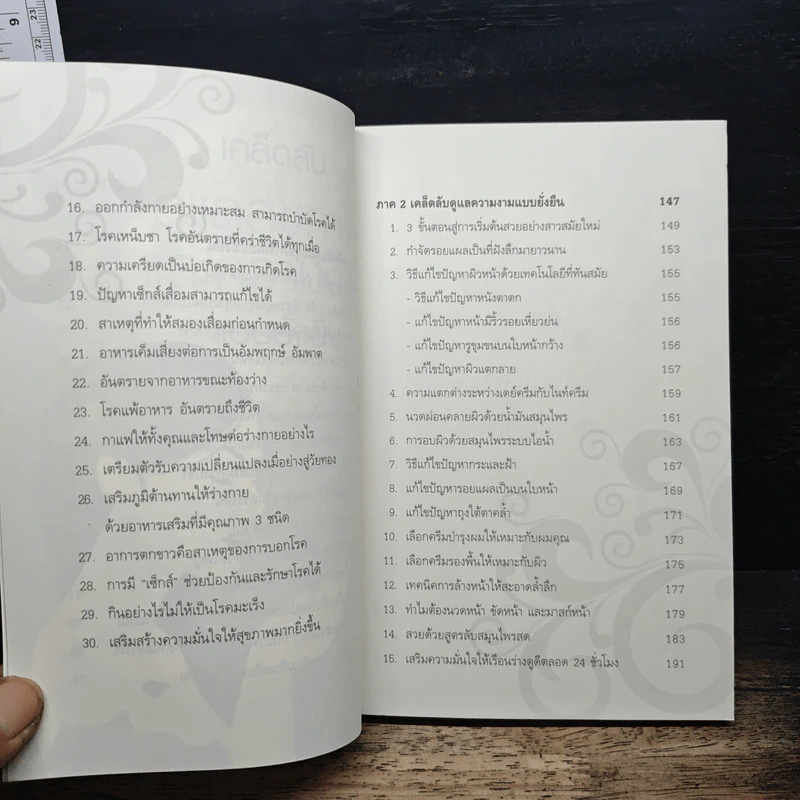 16. ออกกำลังกายอย่างเหมาะสม สามารถบำบัดโรคได้
17. โรคเหน็บชา โรคอันตรายที่คร่าชีวิตได้ทุกเมื่อ
18. ความเครียดเป็นบ่อเกิดของการเกิดโรค
19. ปัญหาเซ็กส์เสื่อมสามารถแก้ไขได้
20. สาเหตุที่ทำให้สมองเสื่อมก่อนกำหนด
21. อาหารเค็มเสี่ยงต่อการเป็นอัมพฤกษ์ อัมพาต
22. อันตรายจากอาหารขณะท้องว่าง
23. โรคแพ้อาหาร อันตรายถึงชีวิต
24. กาแฟให้ทั้งคุณและโทษต่อร่างกายอย่างไร
25. เตรียมตัวรับความเปลี่ยนแปลงเมื่อย่างสู่วัยทอง
26. เสริมภูมิต้านทานให้ร่างกาย
ด้วยอาหารเสริมที่มีคุณภาพ 3 ชนิด
27. อาการตกขาวคือสาเหตุของการบอกโรค
28. การมี "เซ็กส์" ช่วยป้องกันและรักษาโรคได้
29. กินอย่างไรไม่ให้เป็นโรคมะเร็ง
30. เสริมสร้างความมั่นใจให้สุขภาพมากยิ่งขึ้น
ภาค 2 เคล็ดลับดูแลความงามแบบยั่งยืน 147
1. 3 ขั้นตอนสู่การเริ่มต้นสวยอย่างสาวสมัยใหม่ 149
2. กำจัดรอยแผลเป็นที่ฝังลึกมายาวนาน 153
3. วิธีแก้ไขปัญหาผิวหน้าด้วยเทคโนโลยีที่ทันสมัย 155
- วิธีแก้ไขปัญหาหนังตาตก 155
- แก้ไขปัญหาหน้ามีริ้วรอยเหี่ยวย่น 156
- แก้ไขปัญหารูขุมขนบนใบหน้ากว้าง 156
- แก้ไขปัญหาผิวแตกลาย 157
4. ความแตกต่างระหว่างเดย์ครีมกับไนท์ครีม 159
5. นวดผ่อนคลายผิวด้วยน้ำมันสมุนไพร 161
6. การอบผิวด้วยสมุนไพรระบบไอน้ำ 163
7. วิธีแก้ไขปัญหากระและฝ้า 167
8. แก้ไขปัญหารอยแผลเป็นบนใบหน้า 169
9. แก้ไขปัญหาถุงใต้ตาคล้ำ 171
10. เลือกครีมบำรุงผมให้เหมาะกับผมคุณ 173
11. เลือกครีมรองพื้นให้เหมาะกับผิว 175
12. เทคนิคการล้างหน้าให้สะอาดล้ำลึก 177
13. ทำไมต้องนวดหน้า ขัดหน้า และมาสก์หน้า 179
14. สวยด้วยสูตรลับสมุนไพรสด 183
15. เสริมความมั่นใจให้เรือนร่างดูดีตลอด 24 ชั่วโมง 191